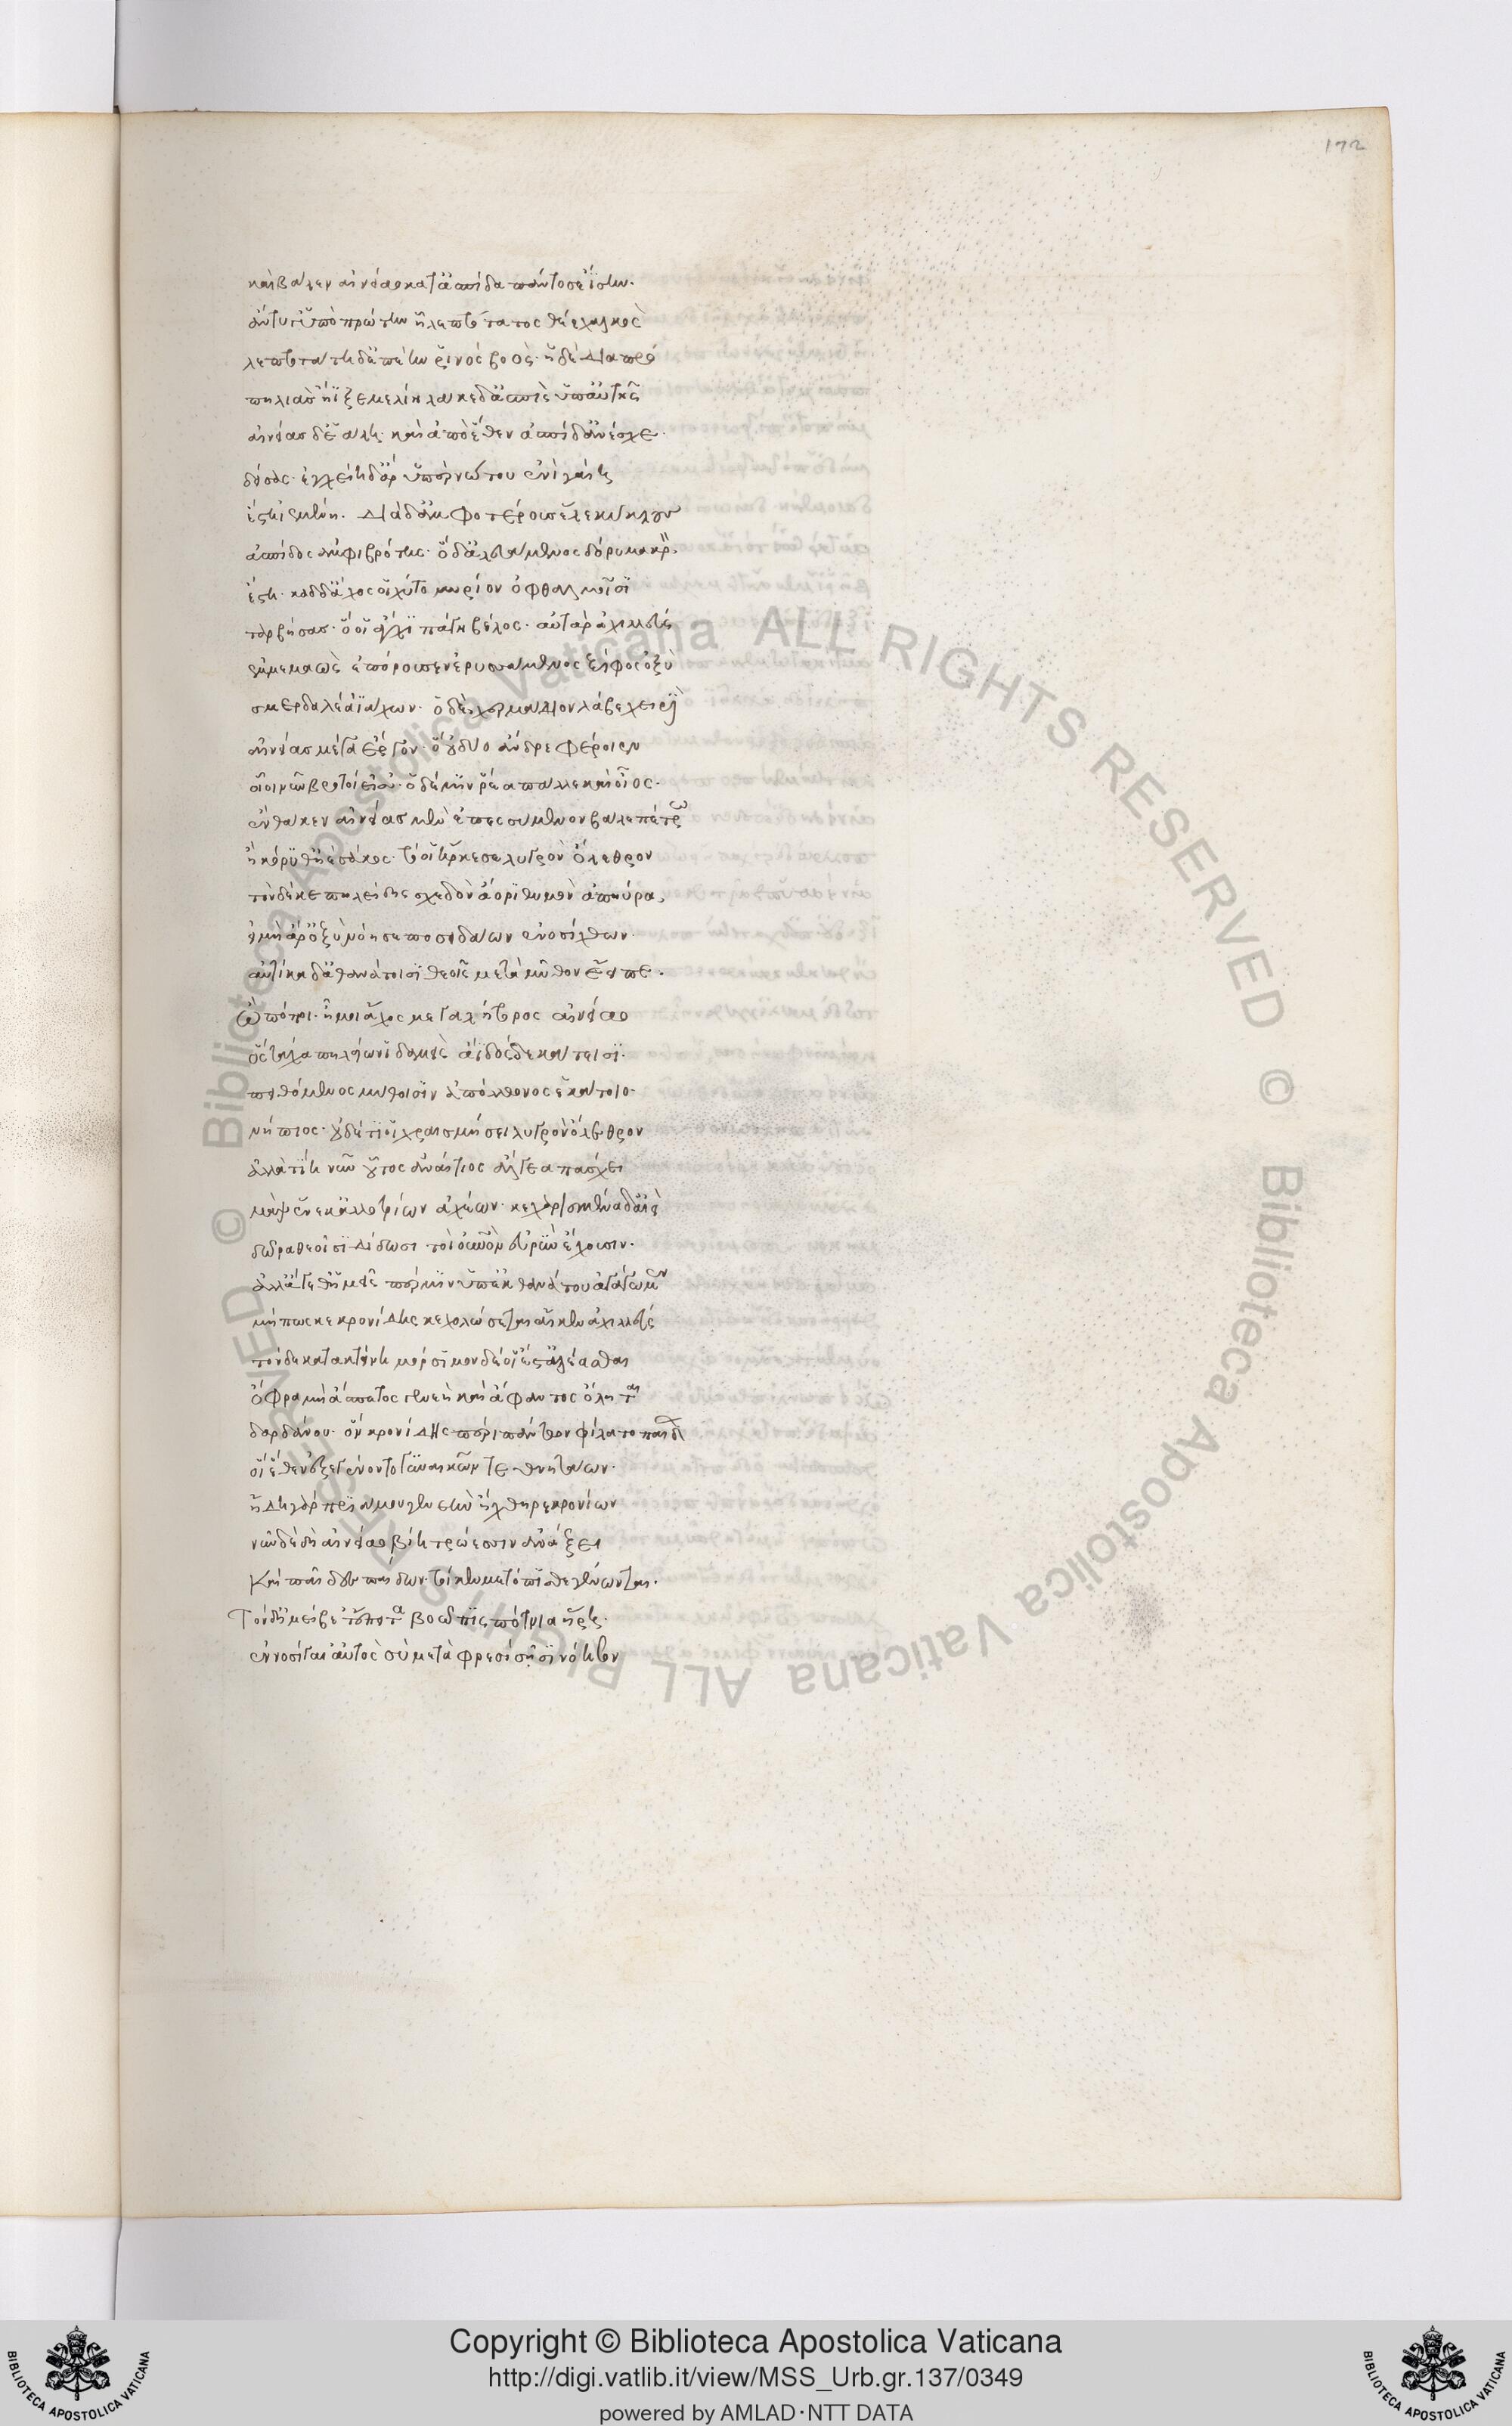 172
καὶ βάλεν αἰνείαο κατ' ἀσπίδα πάντοσ' ἐΐσην.
ἄντυγ' ὕπο πρώτην ᾗ λεπτότατος θέε χαλκὸς
λεπτοτάτη δ' ἐπέην ῥινὸς βοός· ἡ δὲ διαπρὸ
πηλιὰς ἤϊξε μελίη λάκε δ' ἀσπὶς ὑπ' αὐτῆς
αἰνείας δ' ἐάλη· καὶ ἀπὸ ἕθεν ἀσπίδ' ἀνέσχε
δείσας· ἐγχείη δ' ἄρ' ὑπὲρ νώτου ἐνὶ γαίῃ
ἔστη ἱεμένη. διὰ δ' ἀμφοτέρους ἕλε κύκλους
ἀσπίδος ἀμφιβρότης· ὁ δ' ἀλευάμενος δόρυ μακρὸν
ἔστη· καδδ' ἄχος οἱ χύτο μυρίον ὀφθαλμοῖσι
ταρβήσας· ὅ οἱ ἄγχι πάγη βέλος· αὐτὰρ ἀχιλλεὺς
ἐμμεμαὼς ἐπόρουσεν ἐρυσσάμενος ξίφος ὀξὺ
σμερδαλέα ἰάχων· ὁ δὲ χερμάδιον λάβε χειρὶ
αἰνείας μέγα ἔργον· ὃ οὐ δύο ἄνδρε φέροιεν
οἷοι νῦν βροτοί εἰσ'· ὁ δέ μιν ῥέα πάλλε καὶ οἶος.
ἔνθά κεν αἰνείας μὲν ἐπεσσύμενον βάλε πέτρῳ
ἢ κόρυθ' ἠὲ σάκος· τό οἱ ἤρκεσε λυγρὸν ὄλεθρον
τὸν δέ κε πηλείδης σχεδὸν ἄορι θυμὸν ἀπηύρα,
εἰ μὴ ἄρ' ὀξὺ νόησε ποσειδάων ἐνοσίχθων.
αὐτίκα δ' ἀθανάτοισι θεοῖς μετὰ μῦθον ἔειπε.
Ὢ πόποι· ἦ μοι ἄχος μεγαλήτορος αἰνείαο
ὃς τάχα πηλείωνι δαμεὶς ἄϊδος δὲ κάτεισι.
πειθόμενος μύθοισιν ἀπόλλωνος ἑκάτοιο·
νήπιος· οὐδέ τί οἱ χραισμήσει λυγρὸν ὄλεθρον
ἀλλὰ τίη νῦν οὗτος ἀναίτιος ἄλγεα πάσχει
μὰψ ἕνεκ' ἀλλοτρίων ἀχέων· κεχαρισμένα δ' αἰεὶ
δῶρα θεοῖσι δίδωσι τοὶ οὐρανὸν εὐρὺν ἔχουσιν.
ἀλλ' ἄγεθ' ἡμεῖς πέρ μιν ὑπὲκ θανάτου ἀγάγωμεν
μή πως κε κρονίδης κεχολώσεται αἴ κεν ἀχιλλεὺς
τόνδε κατακτείνῃ μόρσιμον δέ οἵ ἐστ' ἀλέασθαι
ὄφρα μὴ ἄσπερμος γενεὴ καὶ ἄφαντος ὄληται
δαρδάνου· ὃν κρονίδης περὶ πάντων φίλατο παίδων
οἳ ἕθεν ἐξεγένοντο γυναικῶν τε θνητάων.
ἤδη γὰρ πριάμου γενεὴν ἤχθηρε κρονίων
νῦν δὲ δὴ αἰνείαο βίη τρώεσσιν ἀνάξει
Καὶ παῖδες παίδων· τοί κεν μετόπισθε γένωνται.
Τὸν δ' ἠμείβετ' ἔπειτα βοῶπις πότνια ἥρη.
ἐννοσίγαι' αὐτὸς σὺ μετὰ φρεσὶ σῇσι νόησον